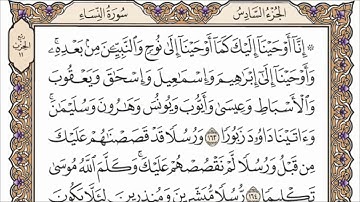 الجزء السادس
سورة النساء
ربع
الحزب
١١
۞ إِنَّا أَوْحَيْنَا إِلَيْكَ كَمَا أَوْحَيْنَا إِلَىٰ نُوحٍ وَالنَّبِيِّينَ مِن بَعْدِهِ ۚ
وَأَوْحَيْنَا إِلَىٰ إِبْرَٰهِيمَ وَإِسْمَٰعِيلَ وَإِسْحَٰقَ وَيَعْقُوبَ
وَالْأَسْبَاطِ وَعِيسَىٰ وَأَيُّوبَ وَيُونُسَ وَهَٰرُونَ وَسُلَيْمَٰنَ ۚ
وَءَاتَيْنَا دَاوُۥدَ زَبُورًا ١٦٣ وَرُسُلًا قَدْ قَصَصْنَٰهُمْ عَلَيْكَ
مِن قَبْلُ وَرُسُلًا لَّمْ نَقْصُصْهُمْ عَلَيْكَ ۚ وَكَلَّمَ اللَّهُ مُوسَىٰ
تَكْلِيمًا ١٦٤ رُّسُلًا مُّبَشِّرِينَ وَمُنذِرِينَ لِئَلَّا يَكُونَ